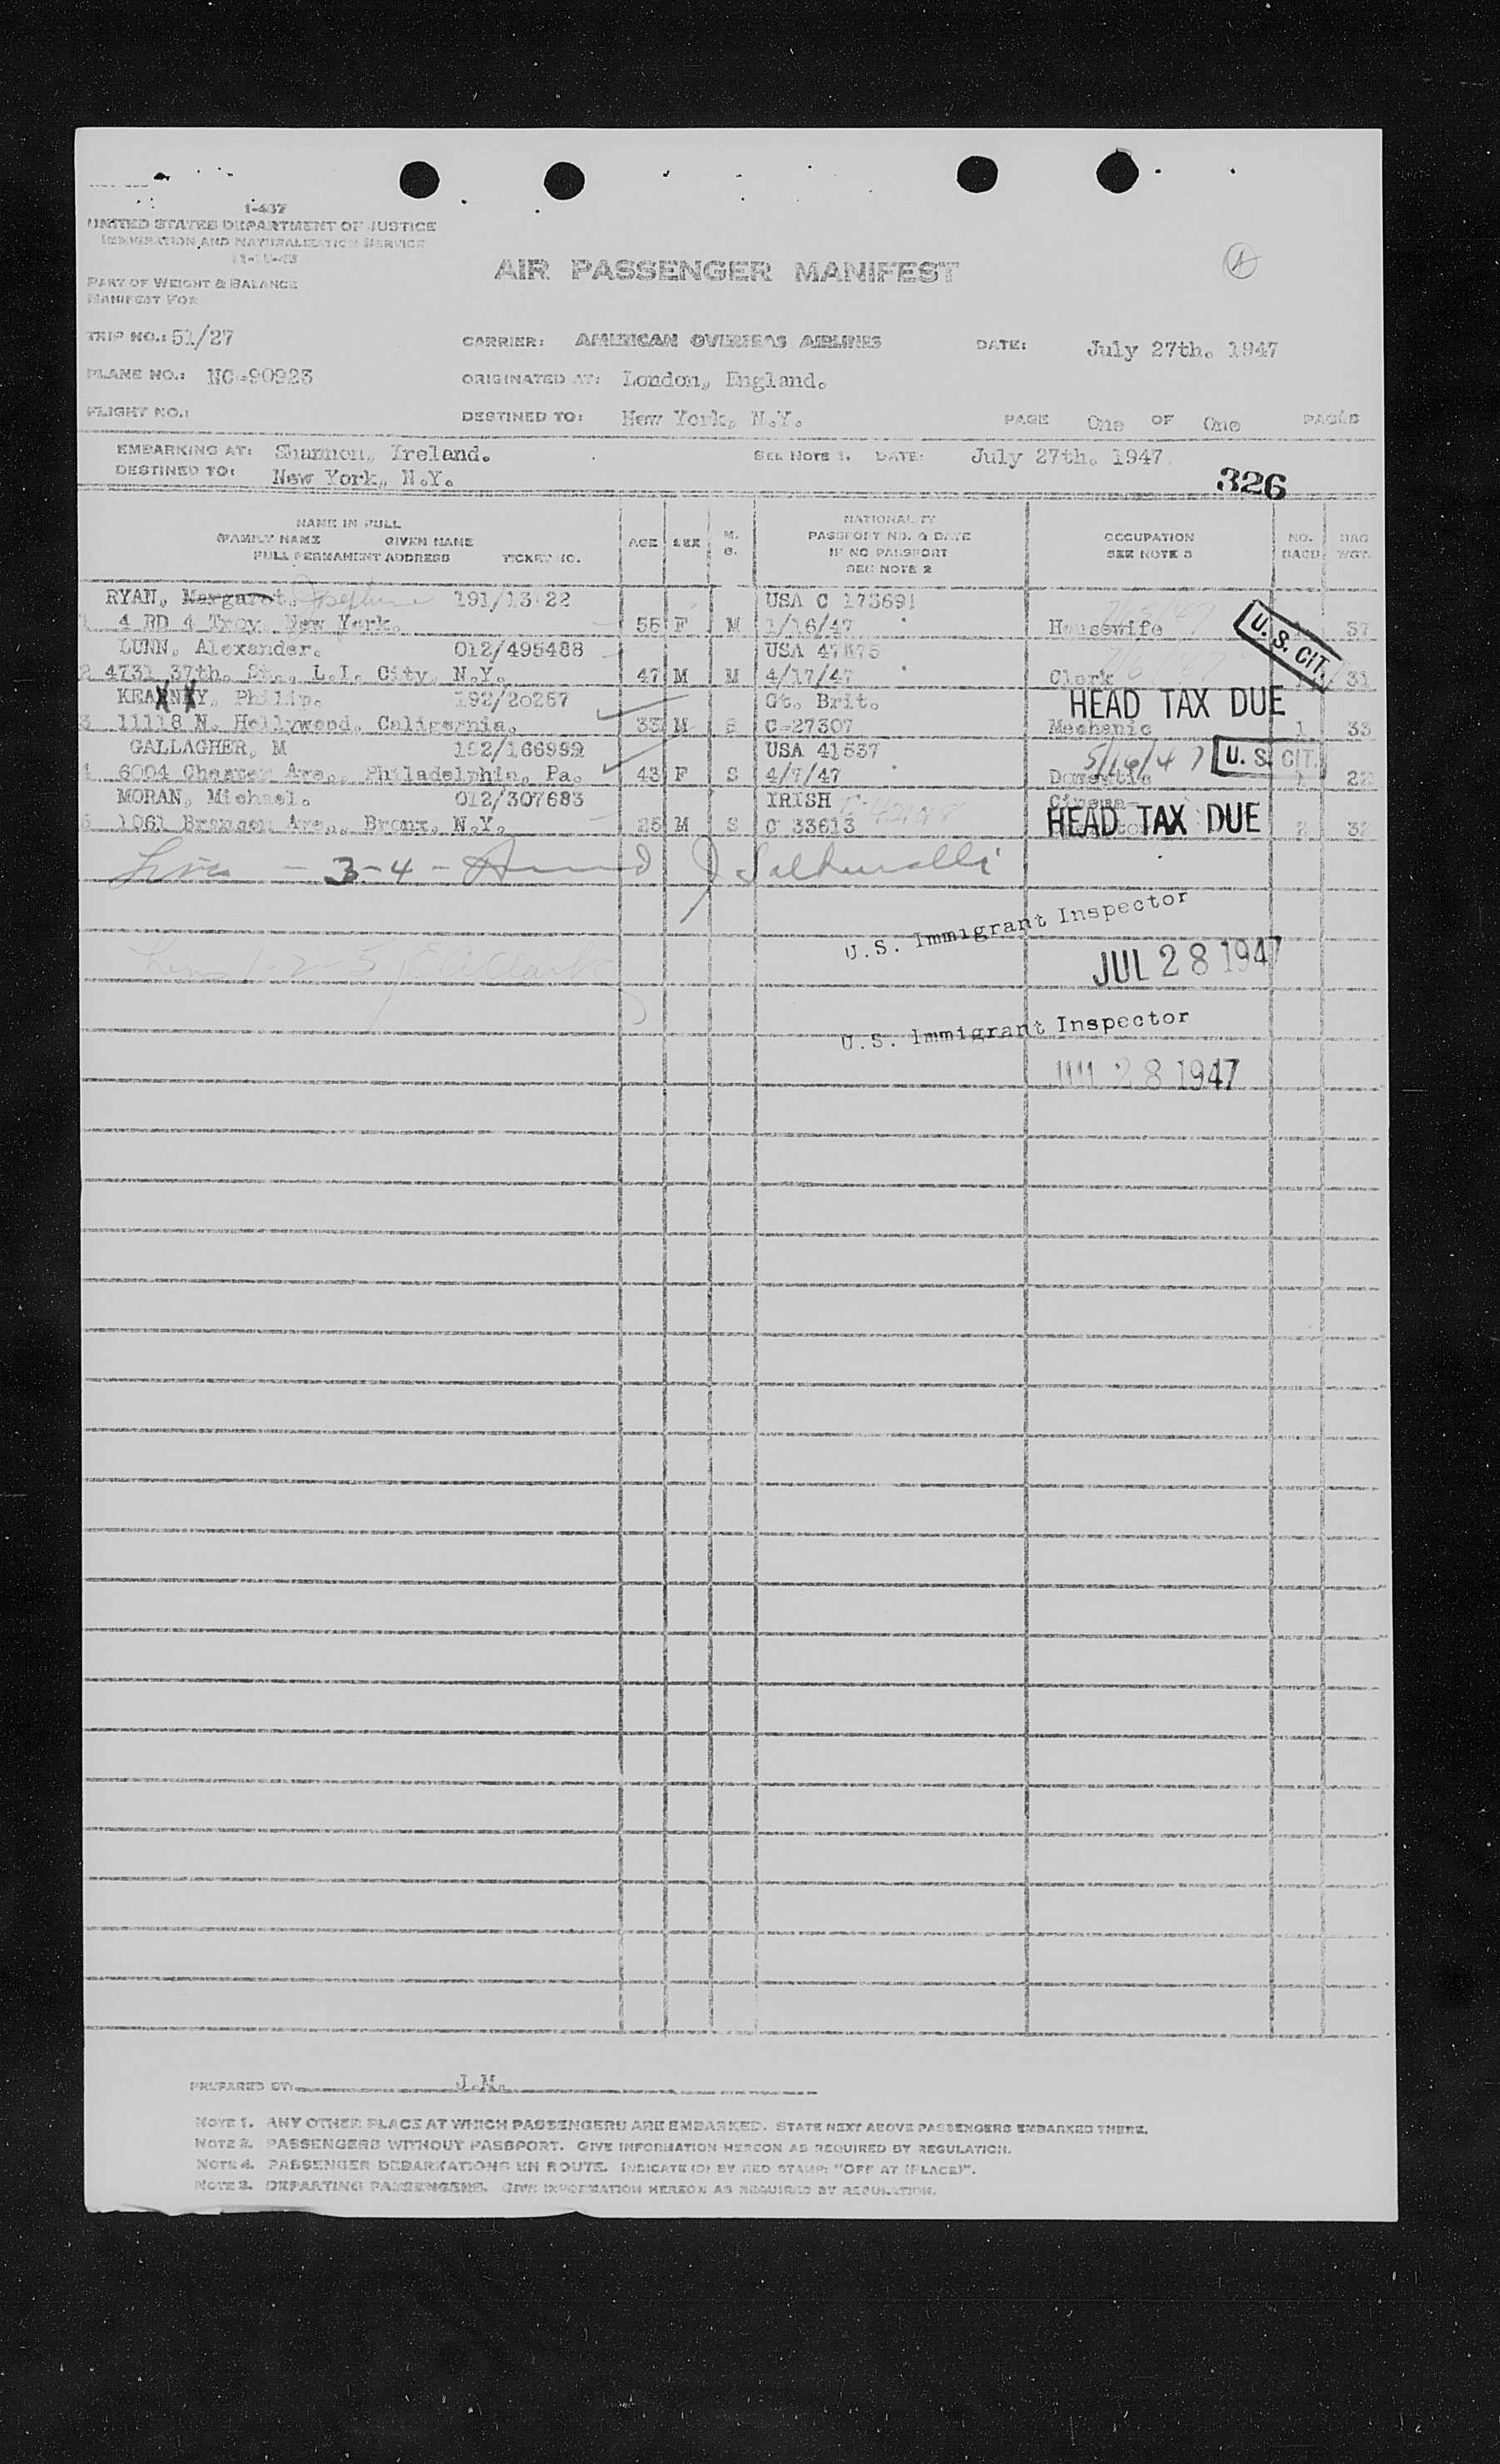 I-437
UNITED STATES DEPARTMENT OF JUSTICE
IMMIGRATION AND NATURALIZATION SERVICE
PART OF WEIGHT & BALANCE
MANIFEST FOR
AIR PASSENGER MANIFEST
TRIP NO.: 51/27 CARRIER: AMERICAN OVERSEAS AIRLINES DATE: July 27th. 1947
PLANE NO.: NC-90923 ORIGINATED AT: London, England.
FLIGHT NO.: DESTINED TO: New York, N.Y. PAGE One OF One PAGES
EMBARKING AT: Shannon, Ireland. SEE NOTE 1. DATE: July 27th. 1947
DESTINED TO: New York, N.Y.
326
NAME IN FULL
FAMILY NAME GIVEN NAME
FULL PERMANENT ADDRESS TICKET NO.
AGE SEX M. S.
NATIONALITY
PASSPORT NO. & DATE
IF NO PASSPORT
SEE NOTE 2
OCCUPATION
SEE NOTE 3
NO. BAGS
BAG WGT.
RYAN, Margaret. Josephine 191/13122 USA C 173691
1 4 RD 4 Troy, New York. 55 F M 1/16/47 Housewife 1 37
U. S. CIT.
DUNN, Alexander. 012/495488 USA 47875
2 4731 37th. St., L.I. City, N.Y. 47 M M 4/17/47 Clerk 31
KEARNEY, Philip. 192/20257 Gt. Brit. HEAD TAX DUE
3 11118 N. Hollywood, California. 33 M S C-27307 Mechanic 1 33
GALLAGHER, M 192/166992 USA 41537 5/16/47 U. S. CIT.
4 6004 Chester Ave., Philadelphia, Pa. 43 F S 4/7/47 Domestic 1 22
MORAN, Michael. 012/307683 IRISH
5 1061 Bronson Ave., Bronx, N.Y. 25 M S C 33613 HEAD TAX DUE 2 32
3-4
U.S. Immigrant Inspector
JUL 28 1947
U.S. Immigrant Inspector
JUL 28 1947
PREPARED BY: J.M.
NOTE 1. ANY OTHER PLACE AT WHICH PASSENGERS ARE EMBARKED. STATE NEXT ABOVE PASSENGERS EMBARKED THERE.
NOTE 2. PASSENGERS WITHOUT PASSPORT. GIVE INFORMATION HEREON AS REQUIRED BY REGULATION.
NOTE 4. PASSENGER DEBARKATIONS EN ROUTE. INDICATE (D) BY RED STAMP: "OFF AT (PLACE)".
NOTE 3. DEPARTING PASSENGERS. GIVE INFORMATION HEREON AS REQUIRED BY REGULATION.